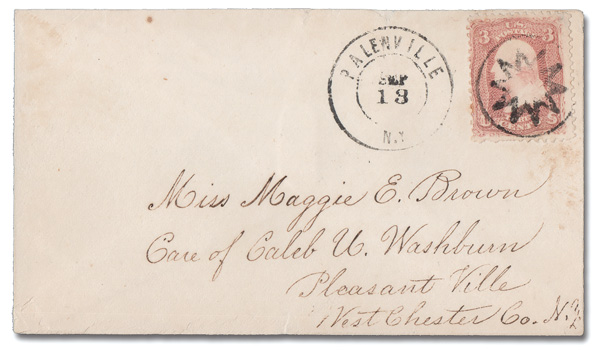 PALENVILLE
SEP
13
N.Y
3 U.S. POSTAGE 3
Miss Maggie E. Brown
Care of Caleb U. Washburn
Pleasant Ville
West Chester Co. N.Y.